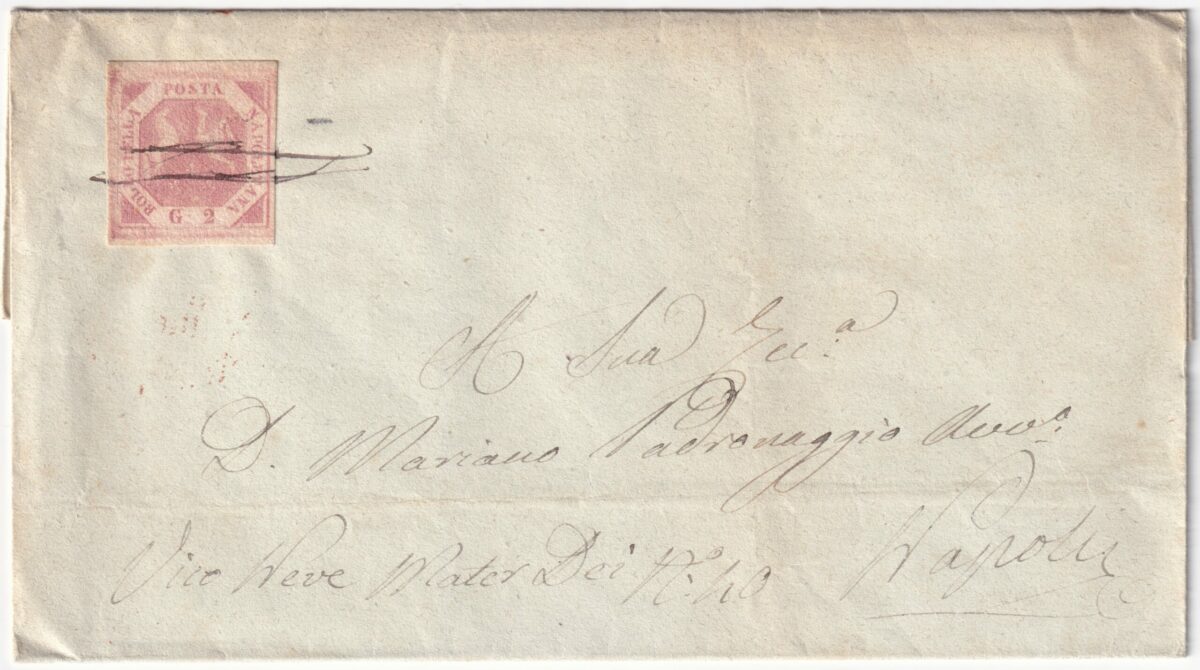 POSTA
NAPOLETANA
BOLLO DELLA
G. 2
A Sua Ecc.ª
D. Mariano Padronaggio Avv.º
Vico Neve Mater Dei N.º 40
Napoli